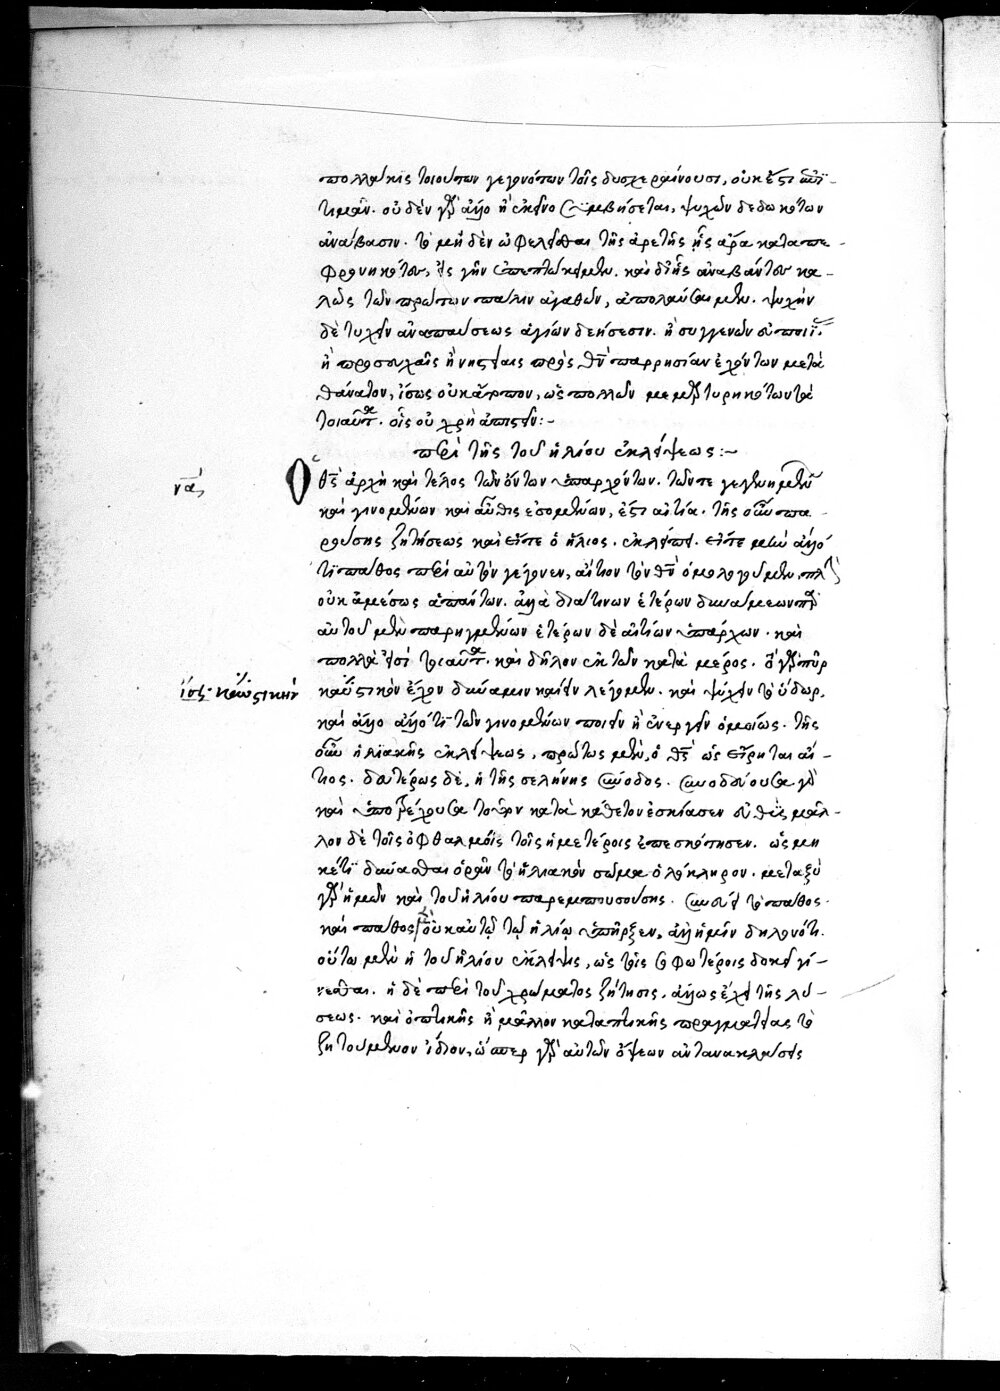 πολλάκις τοιούτων γεγονότων τοῖς δυσχεραίνουσι, οὐκ ἔστι
τιμᾶν. οὐδὲν γὰρ ἄλλο ἢ ἐκεῖνο συμβήσεται, ψυχῶν δεδωκότων
ἀνάβασιν. τὸ μηδὲν ὠφελεῖσθαι τῆς ἀρετῆς ἧς ἄρα καταπε-
φρονηκότες, εἰς γῆν ἐκπεπτώκειμεν. καὶ δι' ἧς ἀναβάντες κα-
λῶς τῶν πρώτων πάλιν ἀγαθῶν, ἀπολαύσαιμεν. ψυχὴν
δὲ τυχεῖν ἀναπαύσεως ἁγίων δεήσεσιν. ἢ συγγενῶν
ἢ προσευχαῖς ἢ νηστείαις πρὸς θν παρρησίαν ἐχόντων μετὰ
θάνατον, ἴσως οὐκ ἄτοπον, ὡς πολλῶν μεμαρτυρηκότων τὰ
τοιαῦτα. οἷς οὐ χρὴ ἀπιστεῖν:-
περὶ τῆς τοῦ ἡλίου ἐκλείψεως:~
να
Ὁ θς ἀρχὴ καὶ τέλος τῶν ὄντων ὑπαρχόντων. τῶν τε γεγενημένων
καὶ γινομένων καὶ αὖθις ἐσομένων, ἔστι αἰτία. τῆς οὖν πα-
ρούσης ζητήσεως καὶ εἴτε ὁ ἥλιος ἐκλείπει. εἴτε μὲν ἄλλό
τι πάθος περὶ αὐτὸν γέγονεν, αἴτιον τὸν θν ὁμολογοῦμεν. πλὴν
οὐκ ἀμέσως ἁπάντων. ἀλλὰ διά τινων ἑτέρων δυνάμεων παρ'
αὐτοῦ μὲν παρηγμένων ἑτέρων δὲ αἰτίων ὑπάρχων. καὶ
πολλά εἰσι τοιαῦτα. καὶ δῆλον ἐκ τῶν κατὰ μέρος. ὃ γὰρ πῦρ
ἴσως καυστικὴν
καυστικὸν ἔχον δύναμιν καίειν λέγομεν. καὶ ψύχειν τὸ ὕδωρ,
καὶ ἄλλο ἄλλό τι τῶν γινομένων ποιεῖν ἢ ἐνεργεῖν ὁμοίως. τῆς
οὖν ἡλιακῆς ἐκλείψεως, πρώτως μὲν, ὁ θς ὡς εἴρηται αἴ-
τιος. δευτέρως δὲ, ἡ τῆς σελήνης σύνοδος. συνοδεύουσα γὰρ
καὶ ὑποτρέχουσα τοῦτον κατὰ κάθετον ἐσκίασεν μᾶλ-
λον δὲ τοῖς ὀφθαλμοῖς τοῖς ἡμετέροις ἐπεσκότησεν. ὡς μη
κέτι δύνασθαι ὁρᾶν τὸ ἡλιακὸν σῶμα ὁλόκληρον. μεταξὺ
γὰρ ἡμῶν καὶ τοῦ ἡλίου παρεμπεσούσης. συνέβη τὸ πάθος.
καὶ πάθος οὐκ αὐτῷ τῷ ἡλίῳ ὑπῆρξεν, ἀλλ' ἡμῖν δηλονότι.
οὕτω μὲν ἡ τοῦ ἡλίου ἔκλειψις, ὡς τοῖς σοφωτέροις δοκεῖ γί-
νεσθαι. ἡ δὲ περὶ τοῦ χρώματος ζήτησις, ἄλλως ἔχει τῆς λύ-
σεως. καὶ ὀπτικῆς ἢ μᾶλλον κατοπτικῆς πραγματείας τὸ
ζητούμενον ἴδιον, ὥσπερ γὰρ αὐτῶν ὄψεων ἀντανακλάσεις